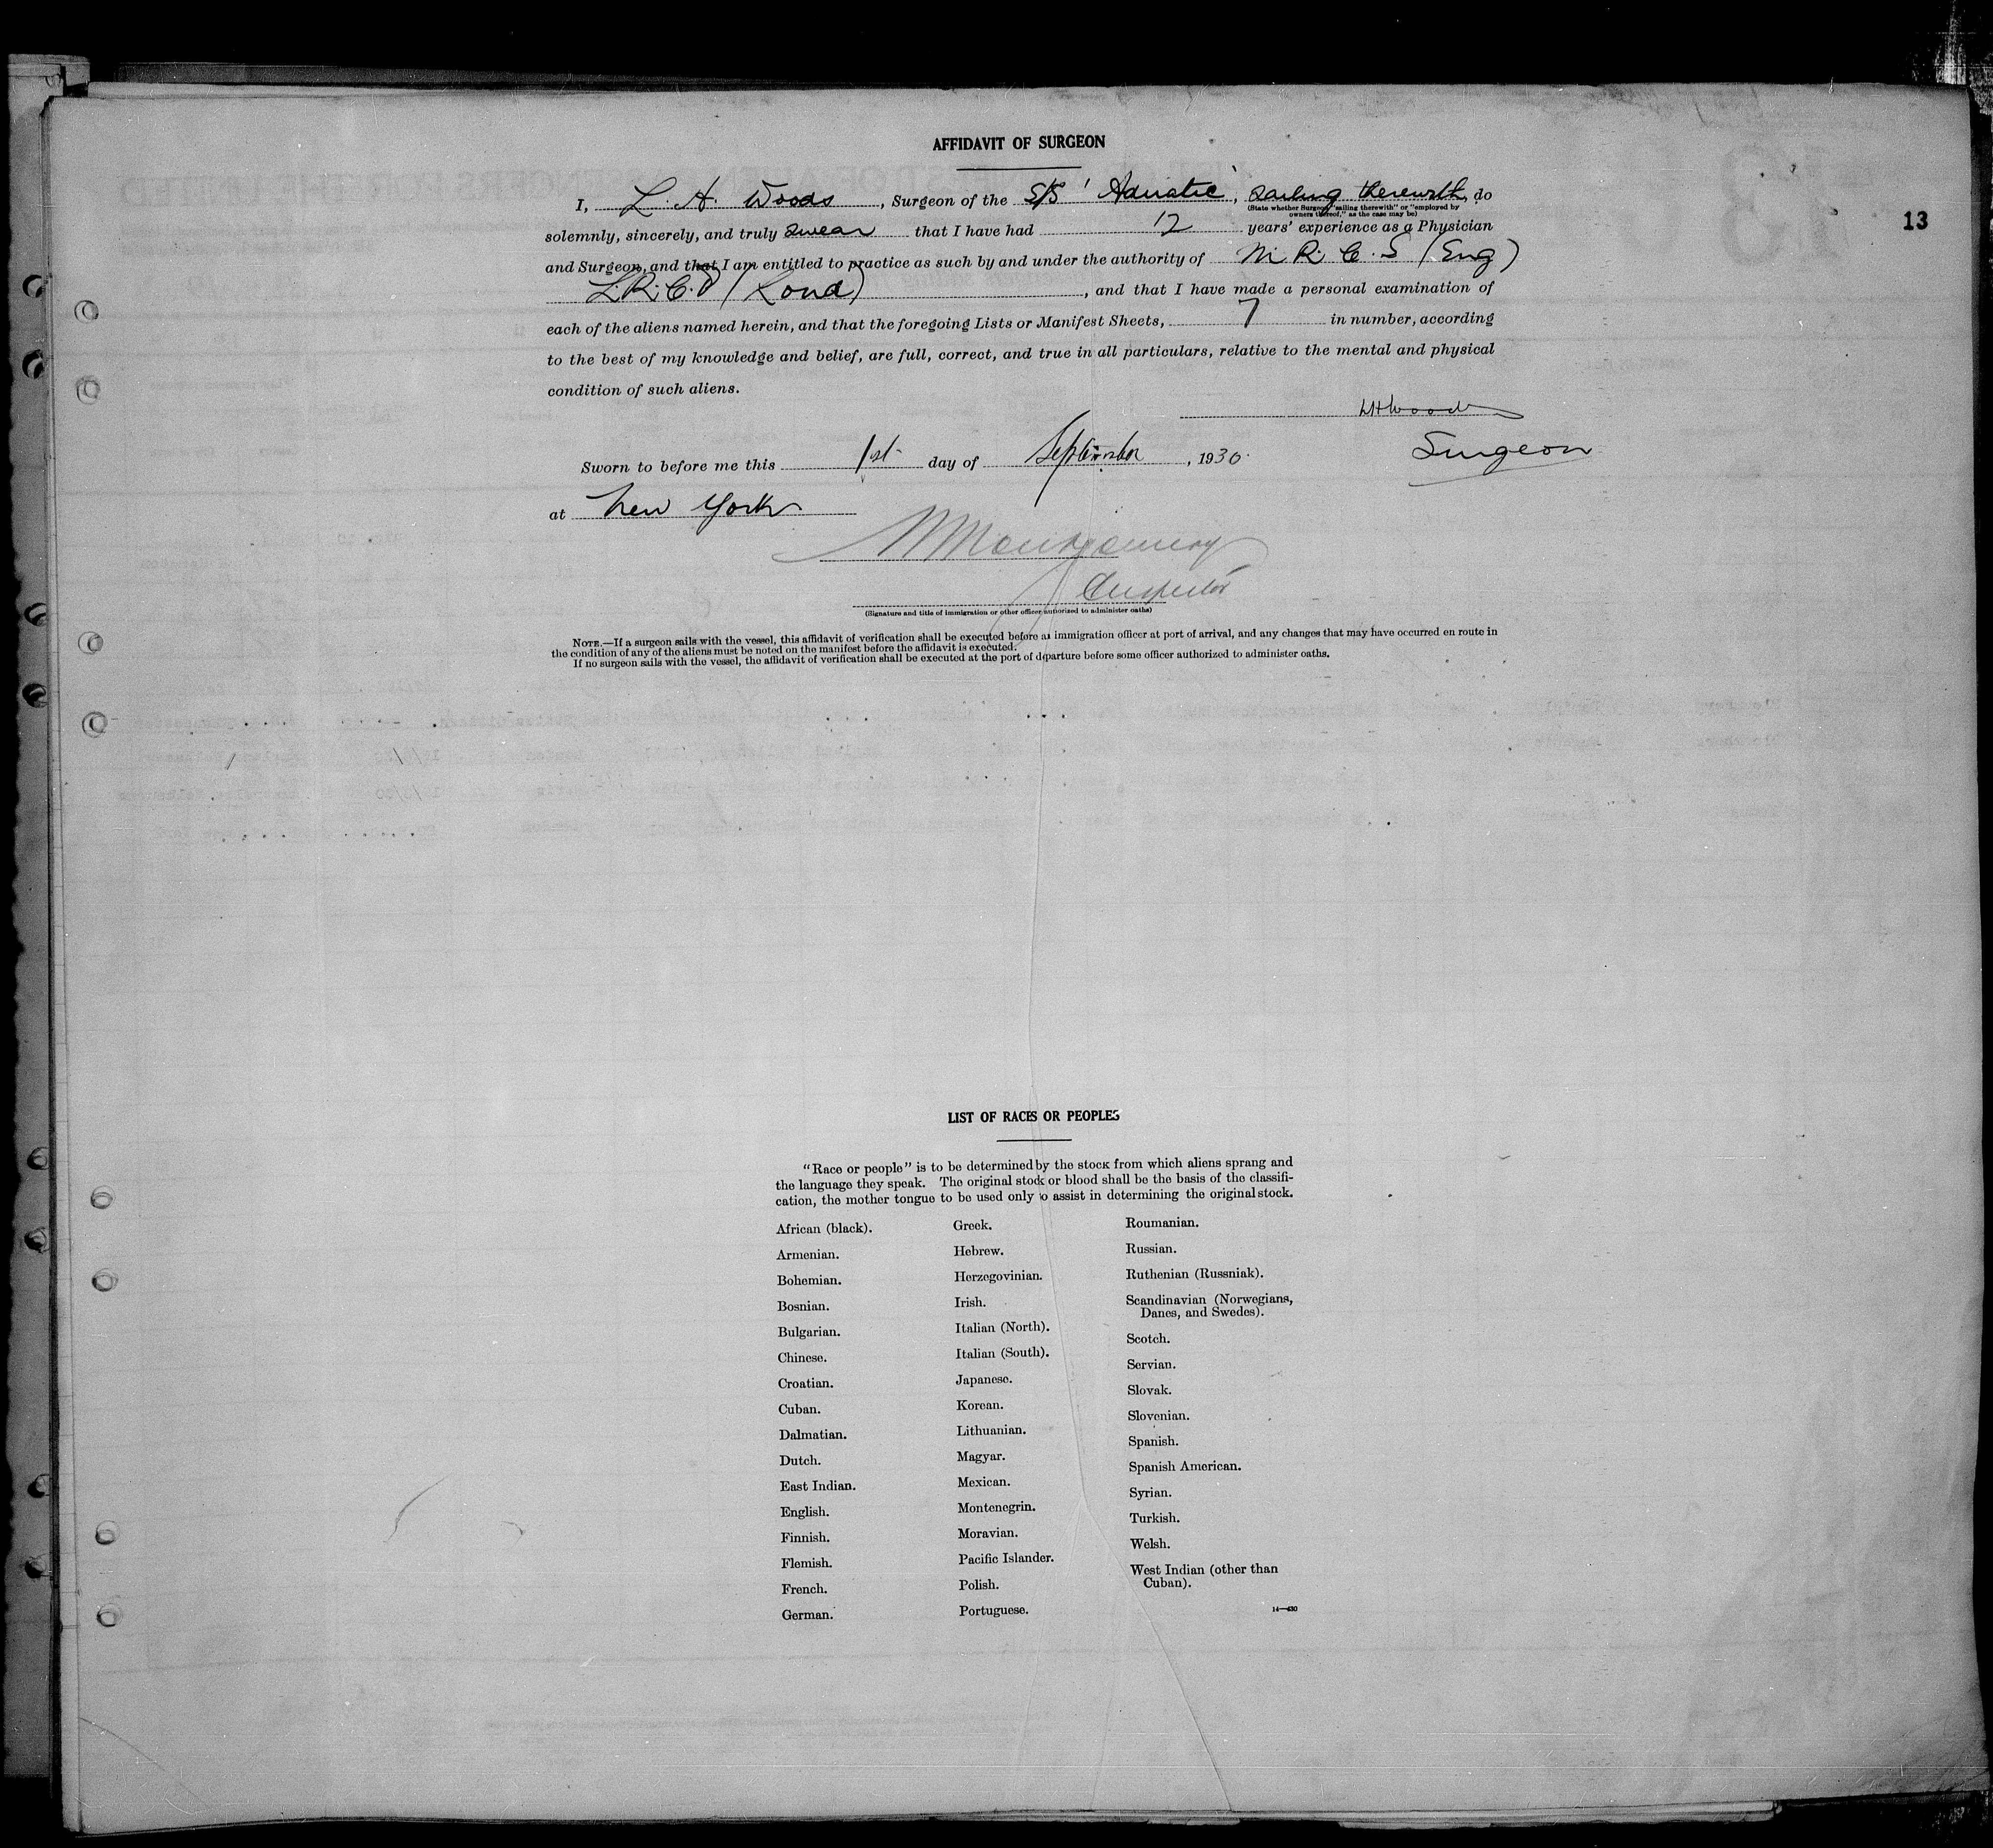 AFFIDAVIT OF SURGEON
I, L. H. Woods, Surgeon of the S/S 'Adriatic', sailing therewith, do
(State whether Surgeon "sailing therewith" or "employed by
owners thereof," as the case may be)
13
solemnly, sincerely, and truly swear that I have had 12 years' experience as a Physician
and Surgeon, and that I am entitled to practice as such by and under the authority of M.R.C.S (Eng)
L.R.C.P (Lond), and that I have made a personal examination of
each of the aliens named herein, and that the foregoing Lists or Manifest Sheets, 7 in number, according
to the best of my knowledge and belief, are full, correct, and true in all particulars, relative to the mental and physical
condition of such aliens.
LHWoods
Surgeon
Sworn to before me this 1st day of September, 1930.
at New York
Montgomery
Inspector
(Signature and title of immigration or other officer authorized to administer oaths)
NOTE.—If a surgeon sails with the vessel, this affidavit of verification shall be executed before an immigration officer at port of arrival, and any changes that may have occurred en route in
the condition of any of the aliens must be noted on the manifest before the affidavit is executed.
If no surgeon sails with the vessel, the affidavit of verification shall be executed at the port of departure before some officer authorized to administer oaths.
LIST OF RACES OR PEOPLES
"Race or people" is to be determined by the stock from which aliens sprang and
the language they speak. The original stock or blood shall be the basis of the classifi-
cation, the mother tongue to be used only to assist in determining the original stock.
African (black).
Armenian.
Bohemian.
Bosnian.
Bulgarian.
Chinese.
Croatian.
Cuban.
Dalmatian.
Dutch.
East Indian.
English.
Finnish.
Flemish.
French.
German.
Greek.
Hebrew.
Herzegovinian.
Irish.
Italian (North).
Italian (South).
Japanese.
Korean.
Lithuanian.
Magyar.
Mexican.
Montenegrin.
Moravian.
Pacific Islander.
Polish.
Portuguese.
Roumanian.
Russian.
Ruthenian (Russniak).
Scandinavian (Norwegians,
Danes, and Swedes).
Scotch.
Servian.
Slovak.
Slovenian.
Spanish.
Spanish American.
Syrian.
Turkish.
Welsh.
West Indian (other than
Cuban).
14—430